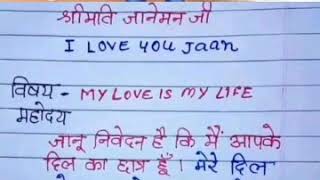 श्रीमति जानेमन जी
I LOVE YOU Jaan
विषय - MY LOVE IS MY LIFE
महोदय
जानू निवेदन है कि मैं आपके
दिल का छात्र हूँ । मेरे दिल